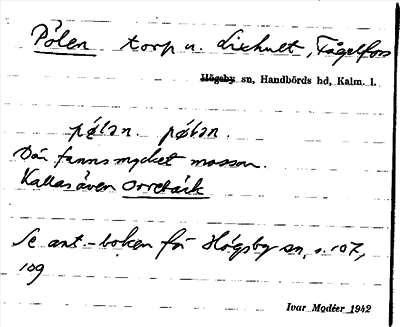 Pölen torp u. Lixhult, Fågelfors
Högsby sn, Handbörds hd, Kalm. l.
pø̨lən. pø̨lən.
Där fanns mycket mossar.
Kallas även Orrebäck
Se ant.-boken för Högsby sn, s. 107,
109
Ivar Modéer 1942